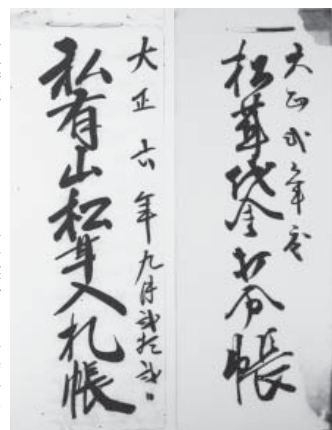 大正弐年度
松茸代金分帳
大正六年九月弐拾弐日
私有山松茸入札帳